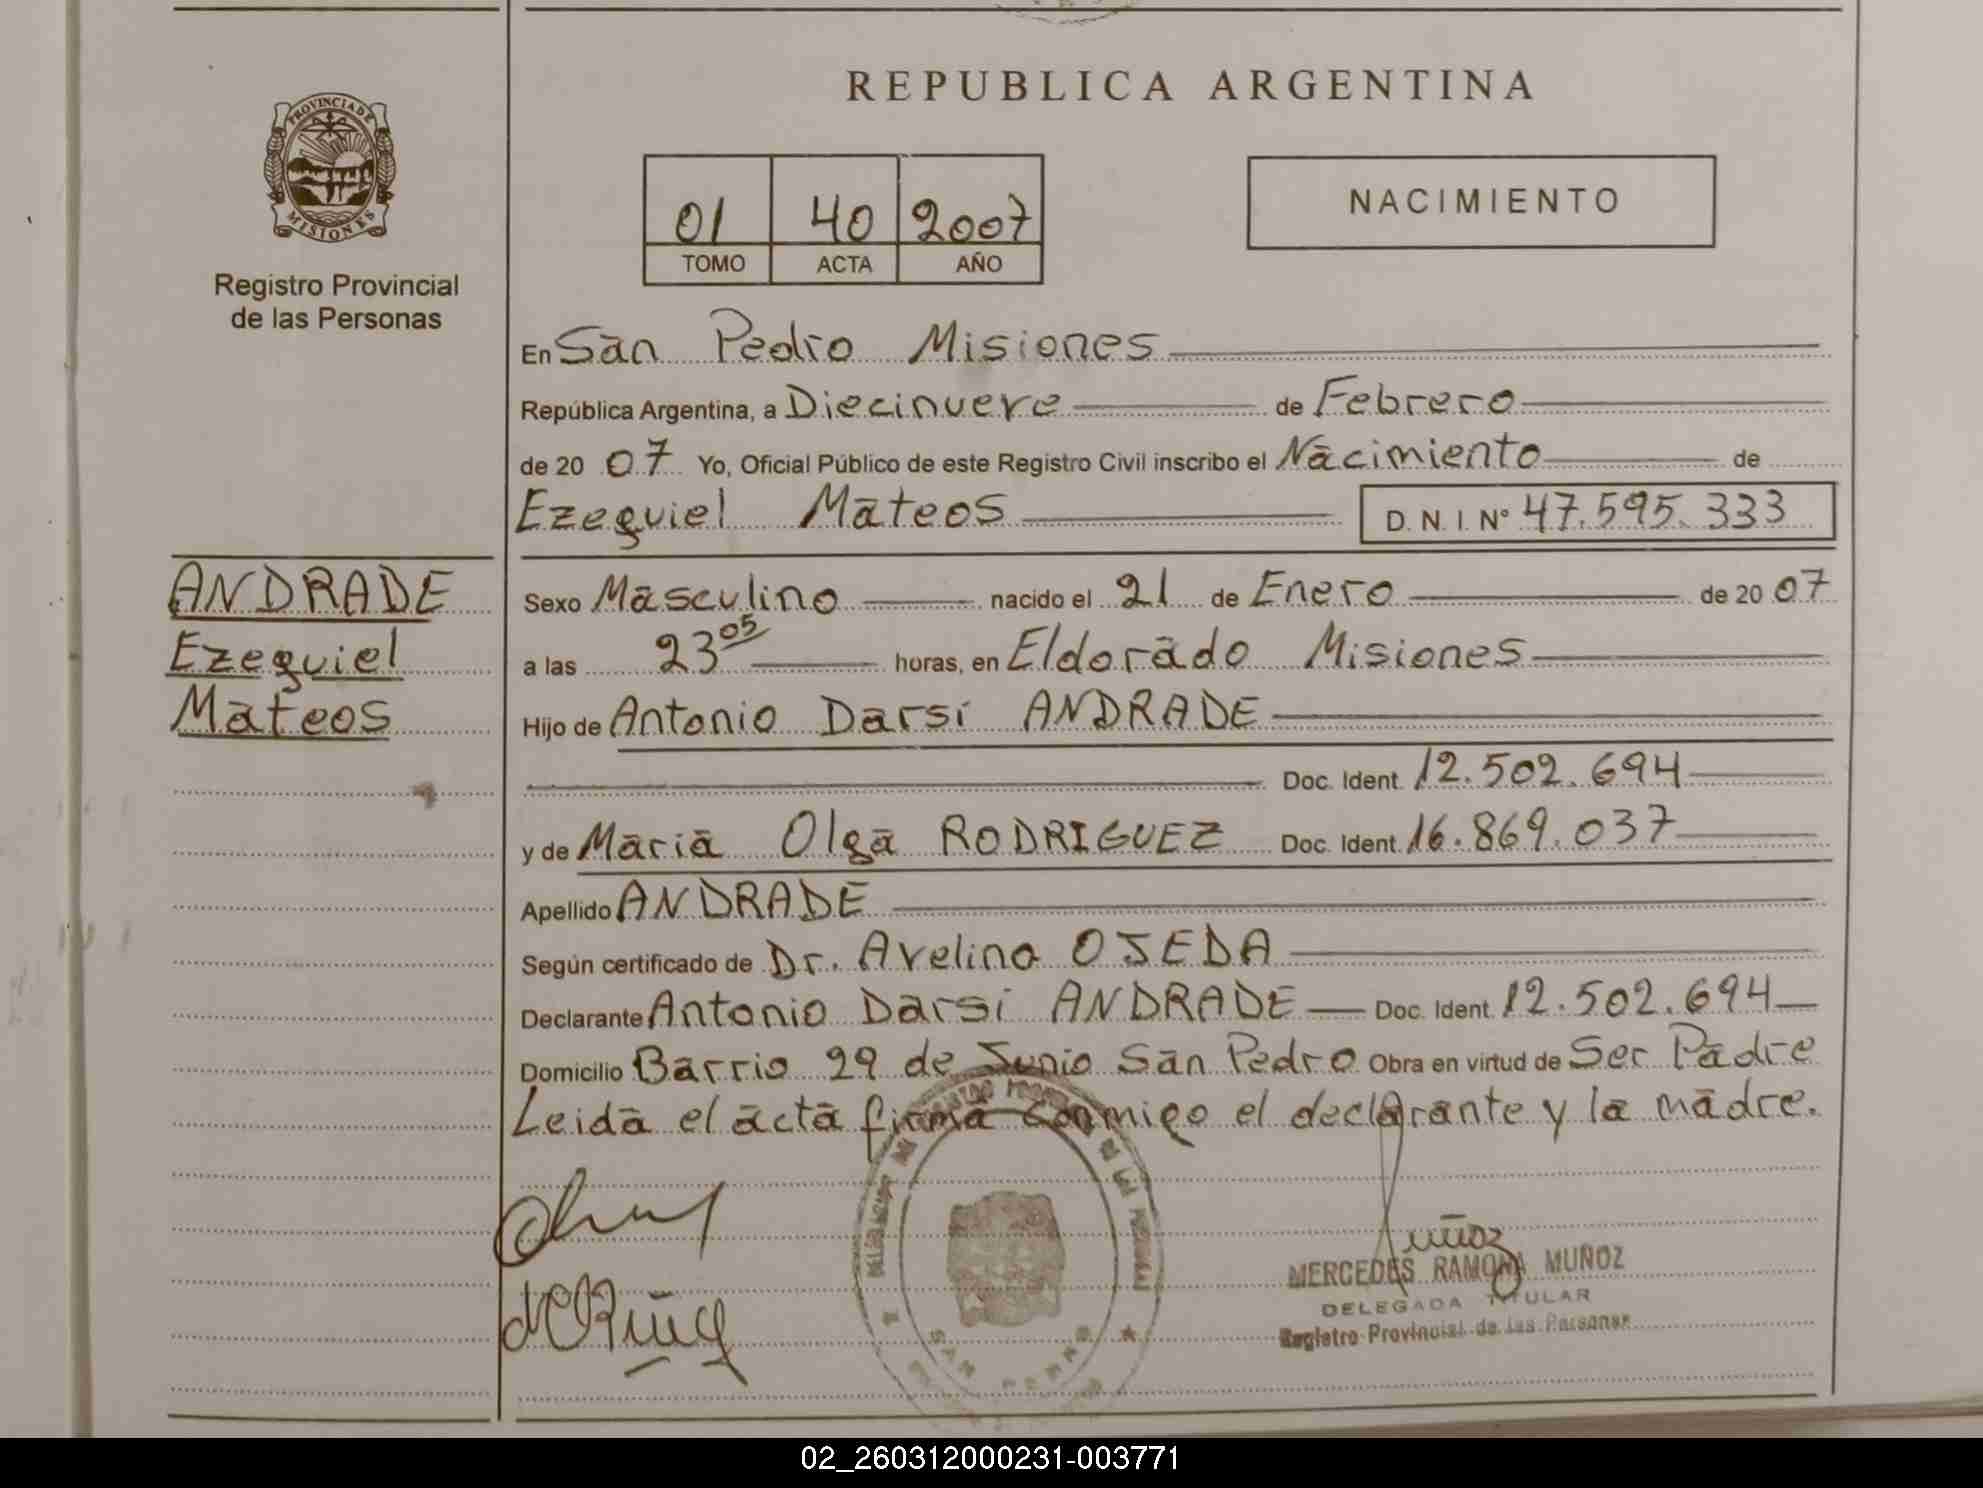 REPUBLICA ARGENTINA
PROVINCIA DE MISIONES
Registro Provincial
de las Personas
01 40 2007
TOMO ACTA AÑO
NACIMIENTO
En San Pedro Misiones
República Argentina, a Diecinueve de Febrero
de 20 07 Yo, Oficial Público de este Registro Civil inscribo el Nacimiento de
Ezequiel Mateos D. N. I. N° 47.595.333
ANDRADE
Ezequiel
Mateos
Sexo Masculino nacido el 21 de Enero de 20 07
a las 23 05 horas, en Eldorado Misiones
Hijo de Antonio Darsi ANDRADE
Doc. Ident. 12.502.694
y de Maria Olga RODRIGUEZ Doc. Ident. 16.869.037
Apellido ANDRADE
Según certificado de Dr. Avelino OJEDA
Declarante Antonio Darsi ANDRADE Doc. Ident. 12.502.694
Domicilio Barrio 29 de Junio San Pedro Obra en virtud de Ser Padre
Leida el acta firma conmigo el declarante y la madre.
Muñoz
MERCEDES RAMONA MUÑOZ
DELEGADA TITULAR
Registro Provincial de las Personas
SAN PEDRO
02_260312000231-003771